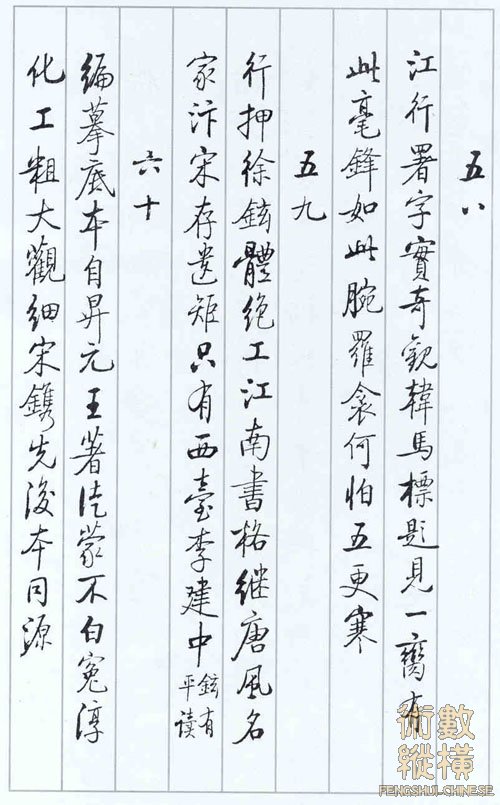 五八
江行署字實奇觀韓馬標題見一臠有
此毫鋒如此腕羅衾何怕五更寒
五九
行押徐鉉體絕工江南書格繼唐風名
家汴宋存遺矩只有西臺李建中鉉有平讀
六十
編摹底本自昇元王著徒蒙不白冤淳
化工粗大觀細宋鐫先後本同源
術數
縱橫
FENGSHUI-CHINESE